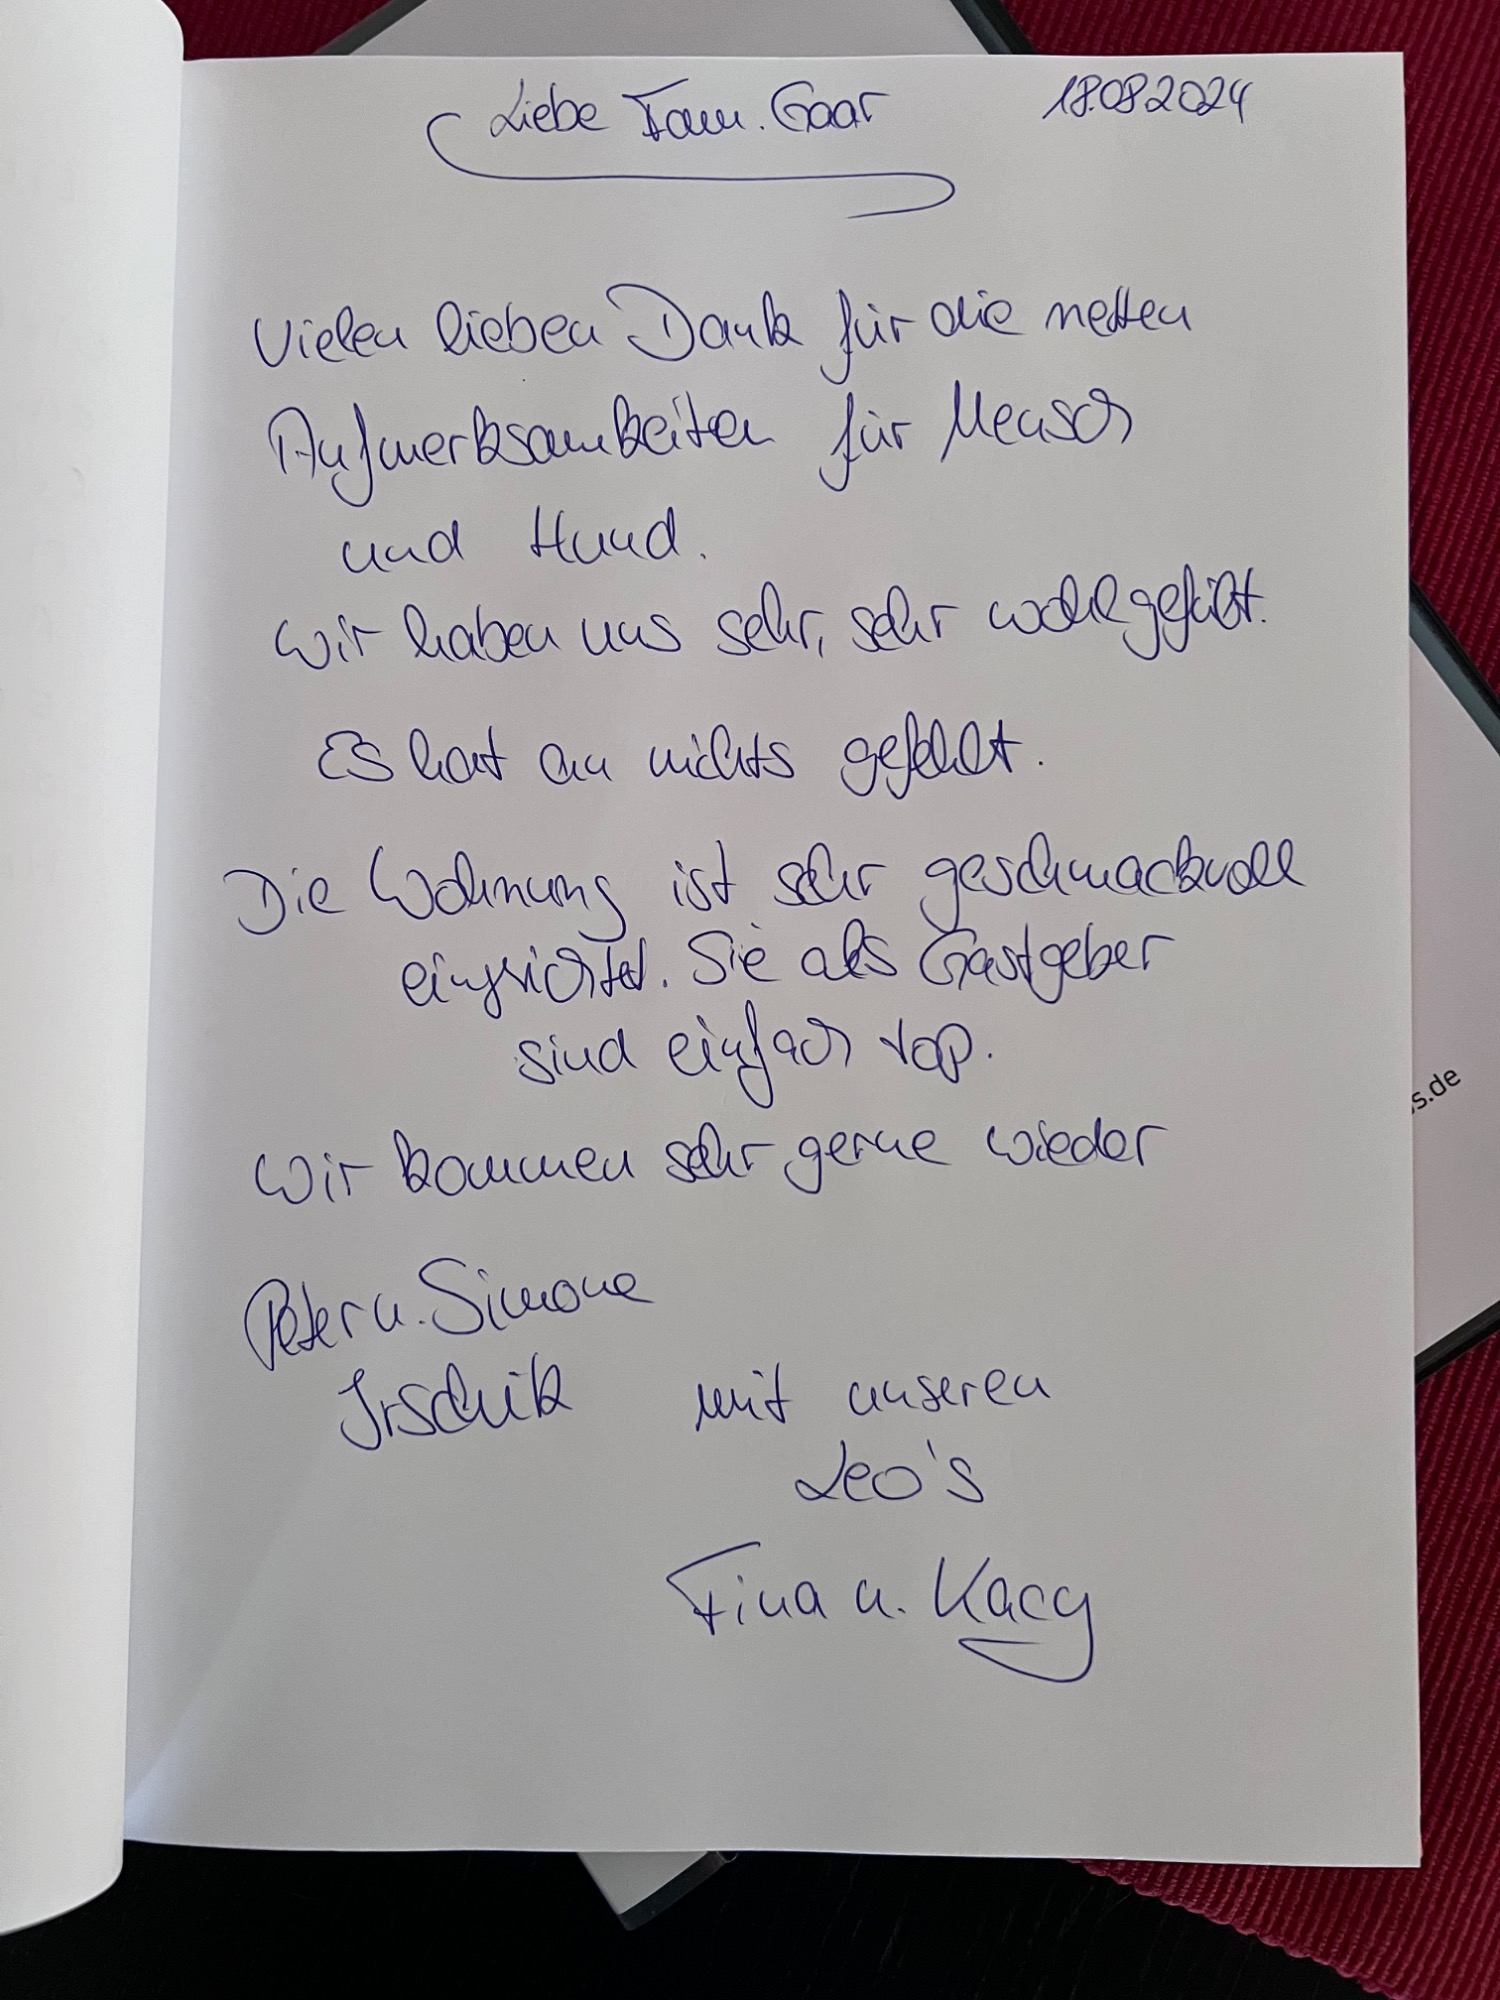 Liebe Fam. Gaar
18.08.2024
Vielen lieben Dank für die netten
Aufmerksamkeiten für Mensch
und Hund.
Wir haben uns sehr, sehr wohlgefühlt.
Es hat an nichts gefehlt.
Die Wohnung ist sehr geschmackvoll
eingerichtet. Sie als Gastgeber
sind einfach top.
Wir kommen sehr gerne wieder
Peter u. Simone
Irschik
mit unseren
Leo's
Fina u. Kacy
s.de